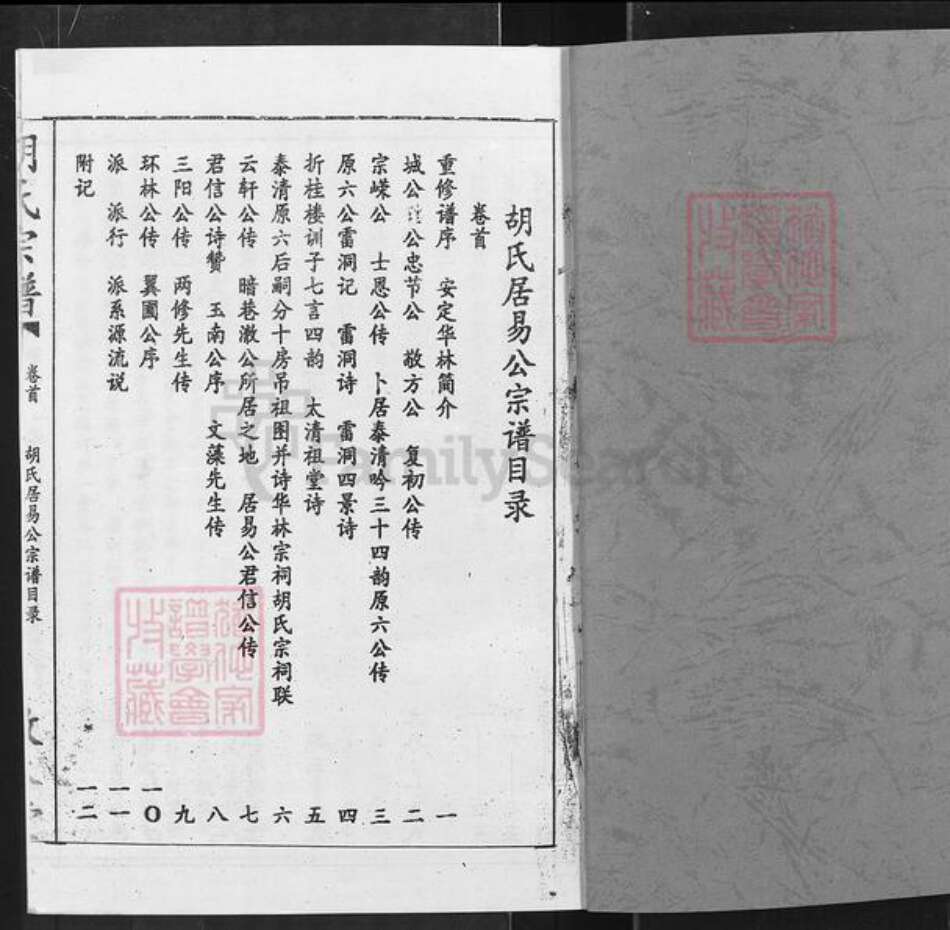 胡氏居易公宗谱目录
卷首
重修谱序 安定华林简介 一
城公 公忠节公 敬方公 复初公传 二
宗嵘公 士恩公传 卜居泰清吟三十四韵原六公传 三
原六公雷洞记 雷洞诗 雷洞四景诗 四
折桂楼训子七言四韵 太清祖堂诗 五
泰清原六后嗣分十房吊祖图并诗华林宗祠胡氏宗祠联 六
云轩公传 暗巷澉公所居之地 居易公君信公传 七
君信公诗赞 玉南公序 文藻先生传 八
三阳公传 两修先生传 九
环林公传 翼圃公序 一〇
派 派行 派系源流说 一一
附记 一二
胡氏宗谱
卷首
胡氏居易公宗谱目录
FamilySearch